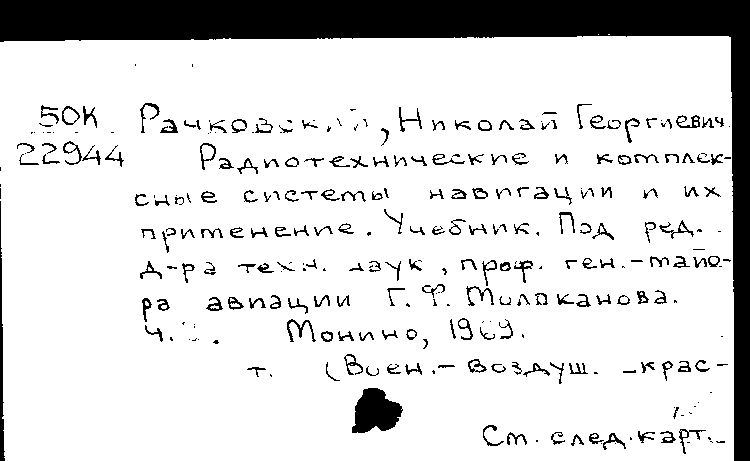 50К Рачковский, Николай Георгиевич
22944 Радиотехнические и комплек-
сные системы навигации и их
применение. Учебник. Под ред.
д-ра техн. наук, проф. ген.-майо-
ра авиации Г. Ф. Молоканова.
Ч. Монино, 1969.
т. (Воен.-воздуш. -крас-
См. след. карт.